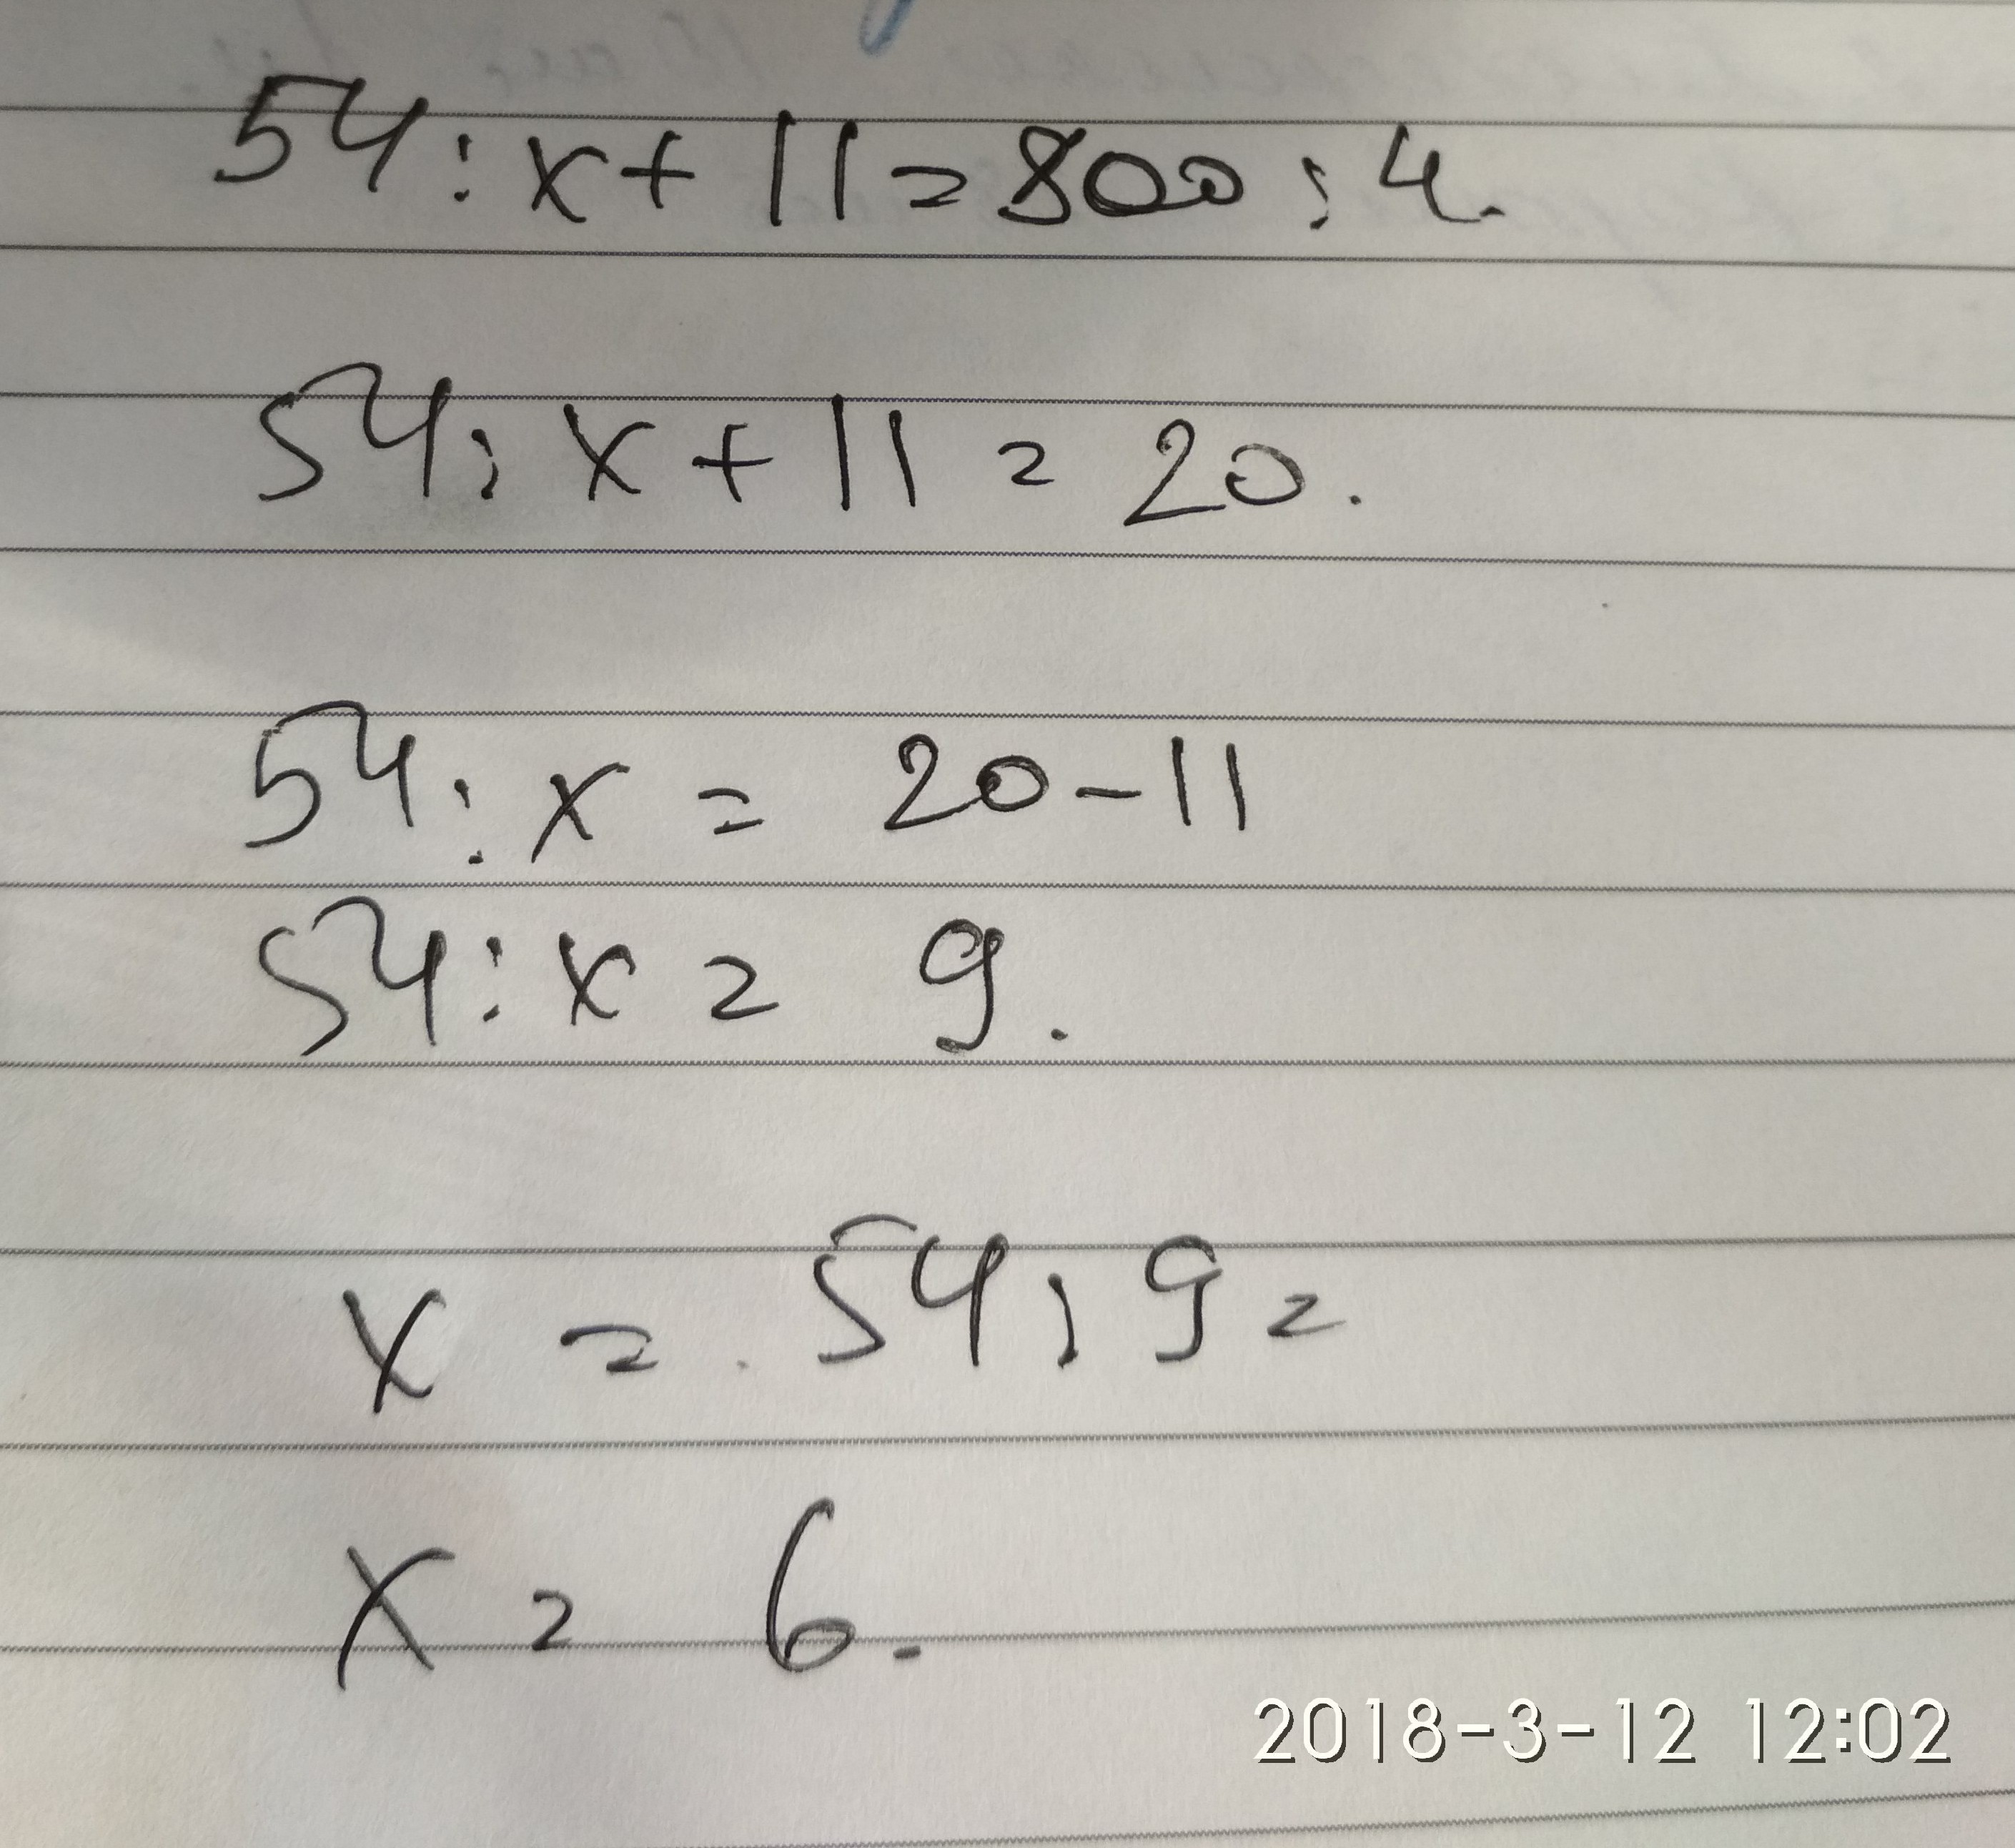 54:x+11=800:4.
54:x+11=20.
54:x=20-11
54:x=9.
x=54:9=
x=6.
2018-3-12 12:02